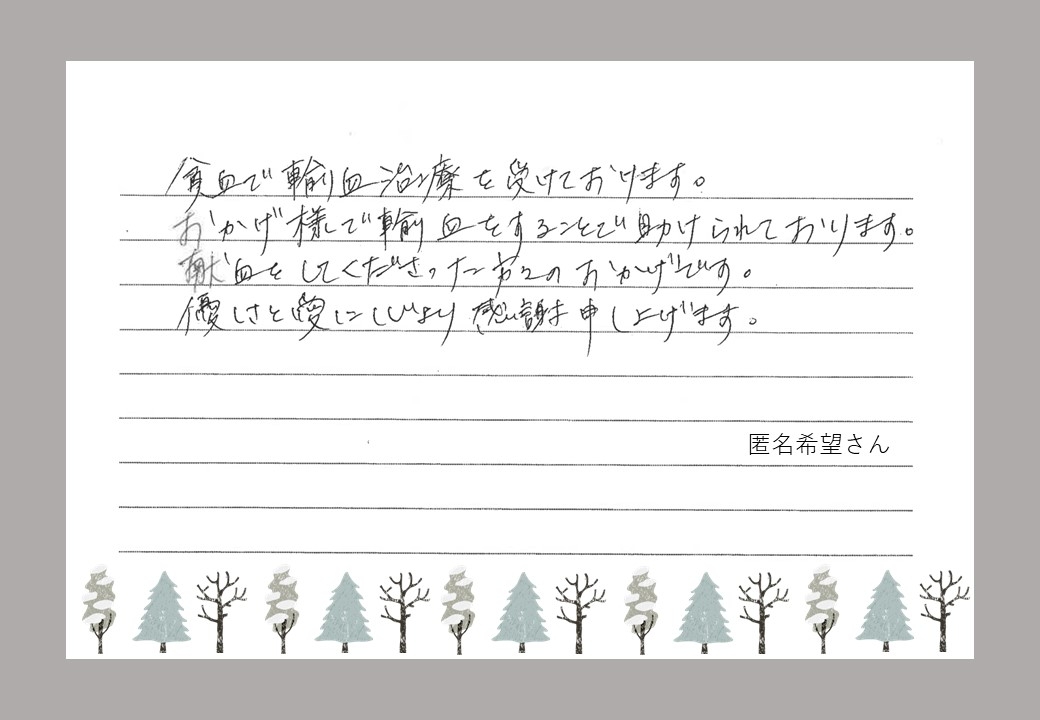 貧血で輸血治療を受けております。
おかげ様で輸血をすることで助けられております。
献血をしてくださった方々のおかげです。
優しさと愛に心より感謝申し上げます。
匿名希望さん